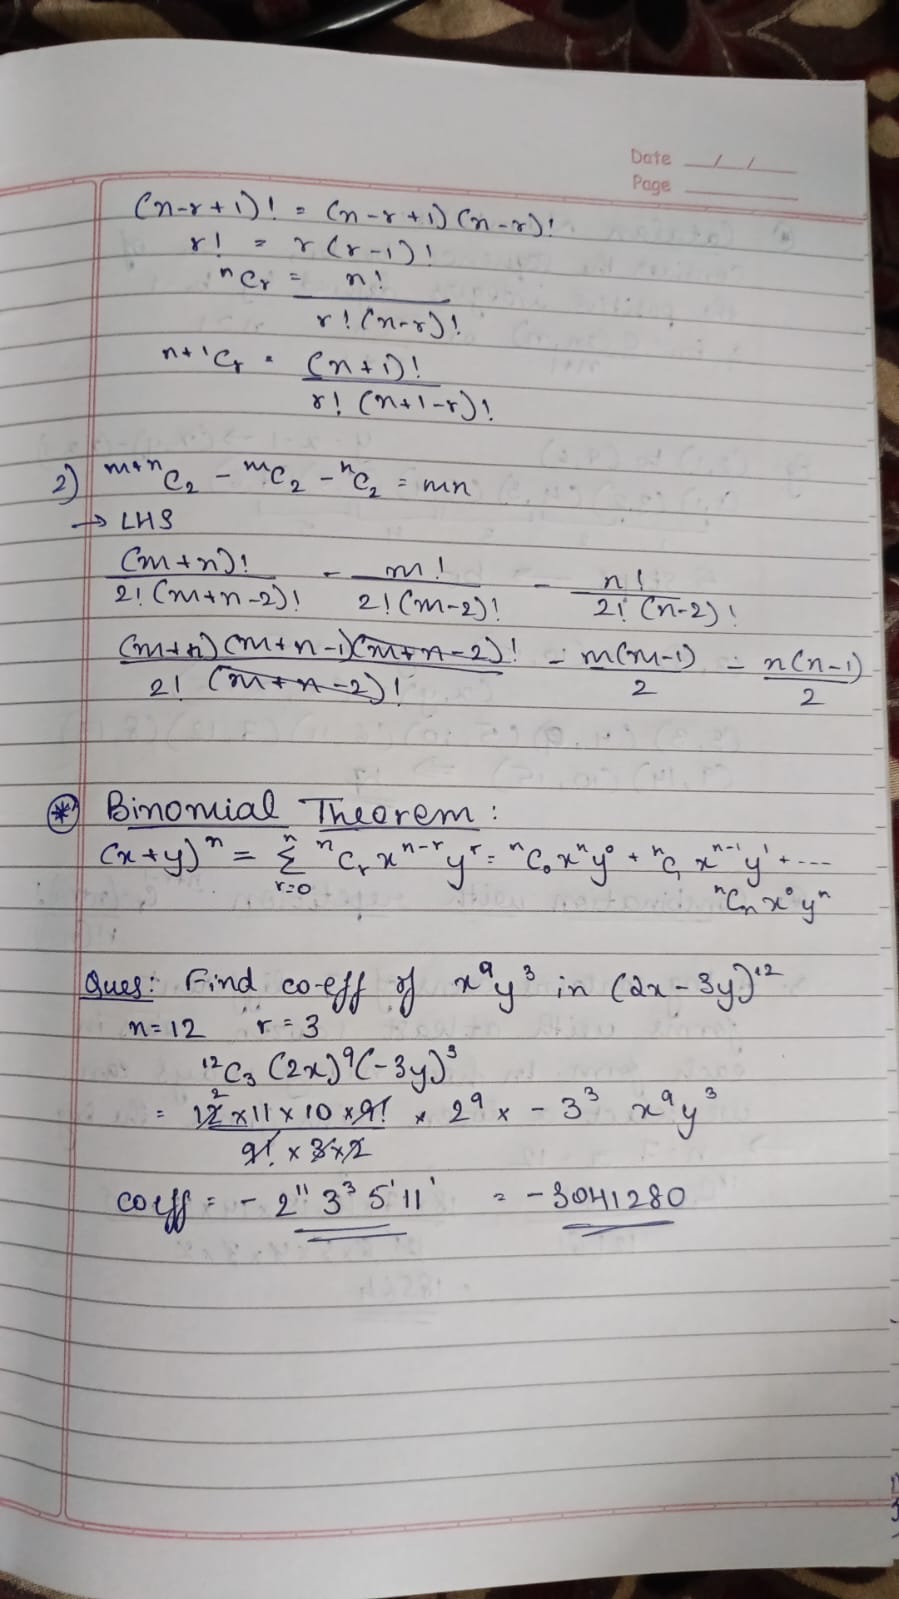 Date / /
Page
(n-r+1)! = (n-r+1)(n-r)!
r! = r(r-1)!
ⁿCᵣ = n! / r!(n-r)!
ⁿ⁺¹Cᵣ = (n+1)! / r!(n+1-r)!
2) ᵐ⁺ⁿC₂ - ᵐC₂ - ⁿC₂ = mn
→ LHS
(m+n)! / 2!(m+n-2)! - m! / 2!(m-2)! - n! / 2!(n-2)!
(m+n)(m+n-1)(m+n-2)! / 2!(m+n-2)! - m(m-1) / 2 - n(n-1) / 2
* Binomial Theorem:
(x+y)ⁿ = Σⁿᵣ₌₀ ⁿCᵣ xⁿ⁻ʳ yʳ = ⁿC₀ xⁿy⁰ + ⁿC₁ xⁿ⁻¹ y¹ + ----
ⁿCₙ x⁰ yⁿ
Ques: Find co-eff of x⁹y³ in (2x-3y)¹²
n=12 r=3
¹²C₃ (2x)⁹(-3y)³
= 12 2 x 11 x 10 x 9! / 9! x 3 x 2 x 2⁹ x - 3³ x⁹y³
coeff = - 2¹¹ 3³ 5¹ 11¹ = -3041280